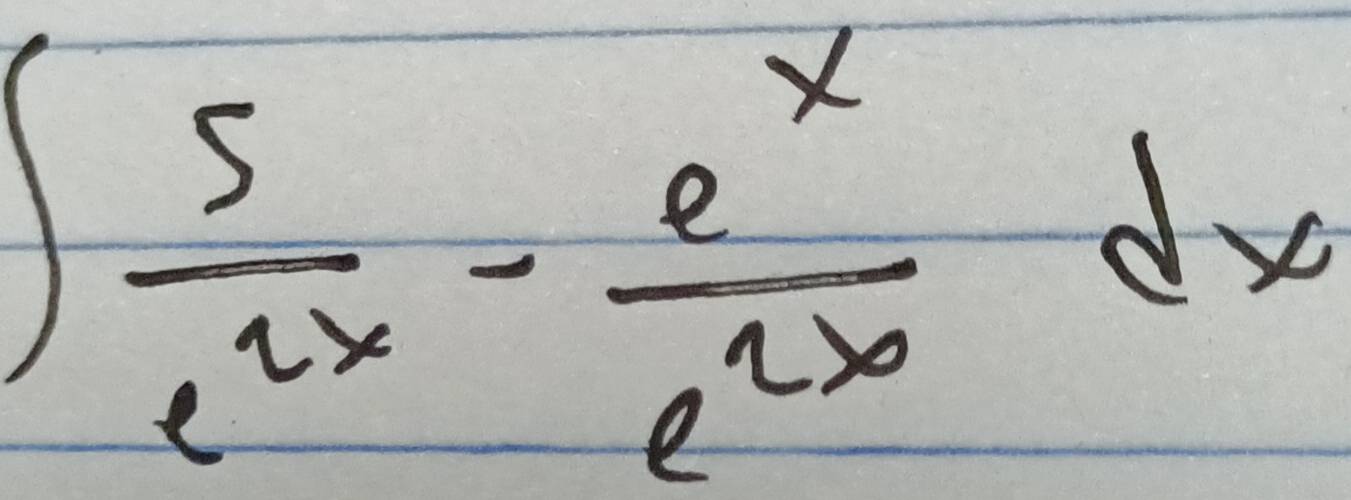 ∫ 5/e^{2x} - e^x/e^{2x} dx